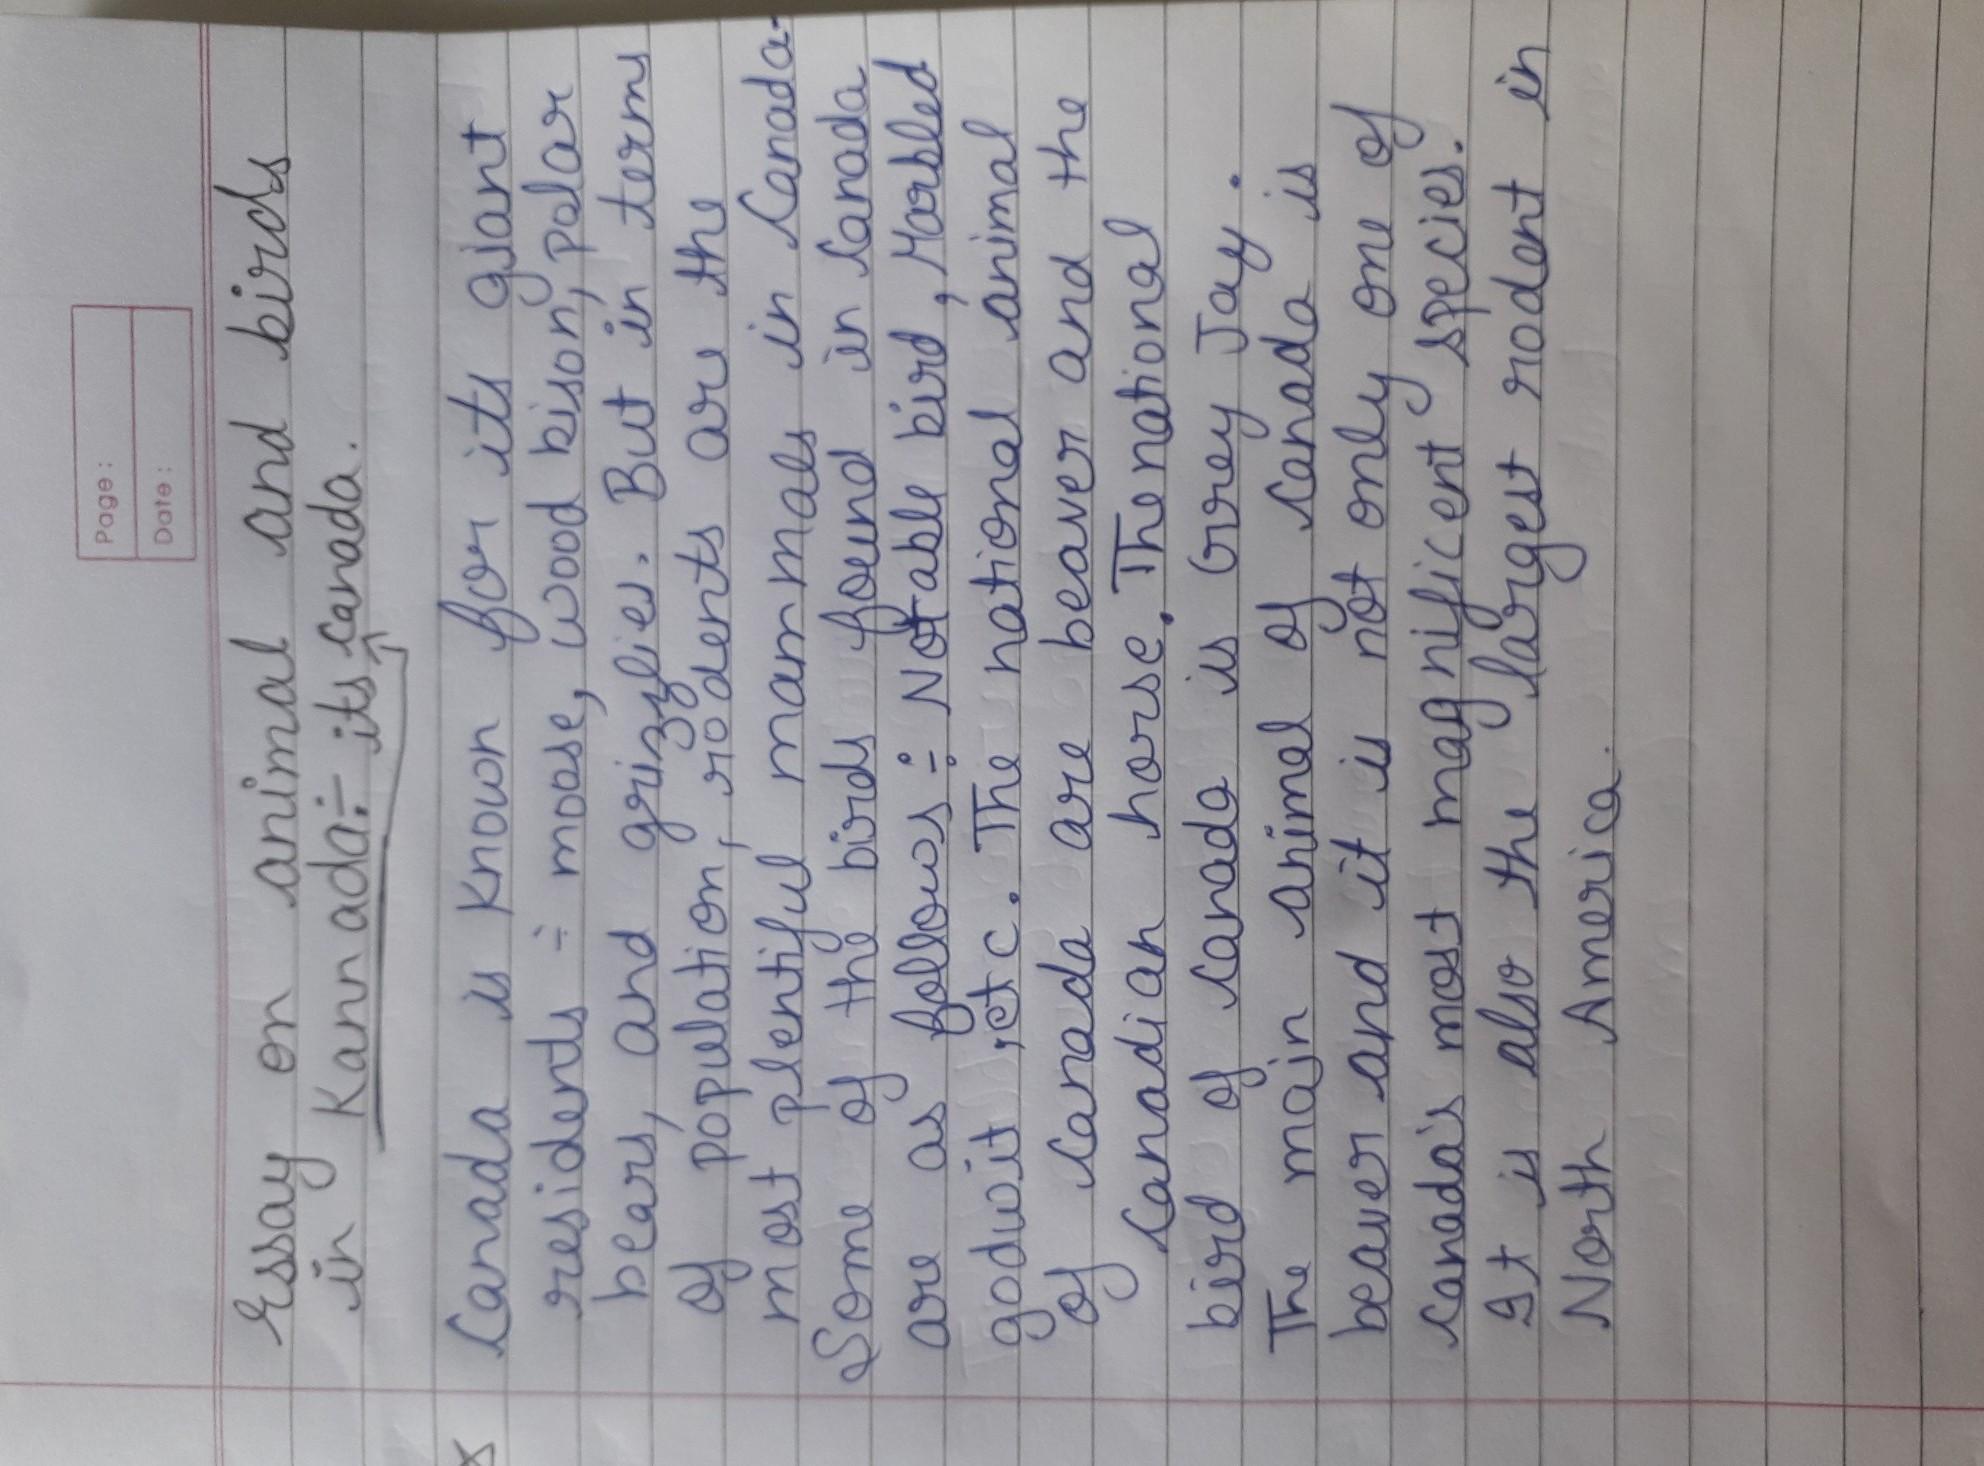 Page :
Date :
Essay on animal and birds
in Kannada:- its canada.
Canada is known for its giant
residents :- moose, wood bison, polar
bears, and grizzlies. But in terms
of population, rodents are the
most plentiful mammals in Canada.
Some of the birds found in Canada
are as follows :- Notable bird, Marbled
godwit, etc. The national animal
of Canada are beaver and the
Canadian horse. The national
bird of Canada is Grey Jay.
The main animal of Canada is
beaver and it is not only one of
Canada's most magnificent species.
It is also the largest rodent in
North America.